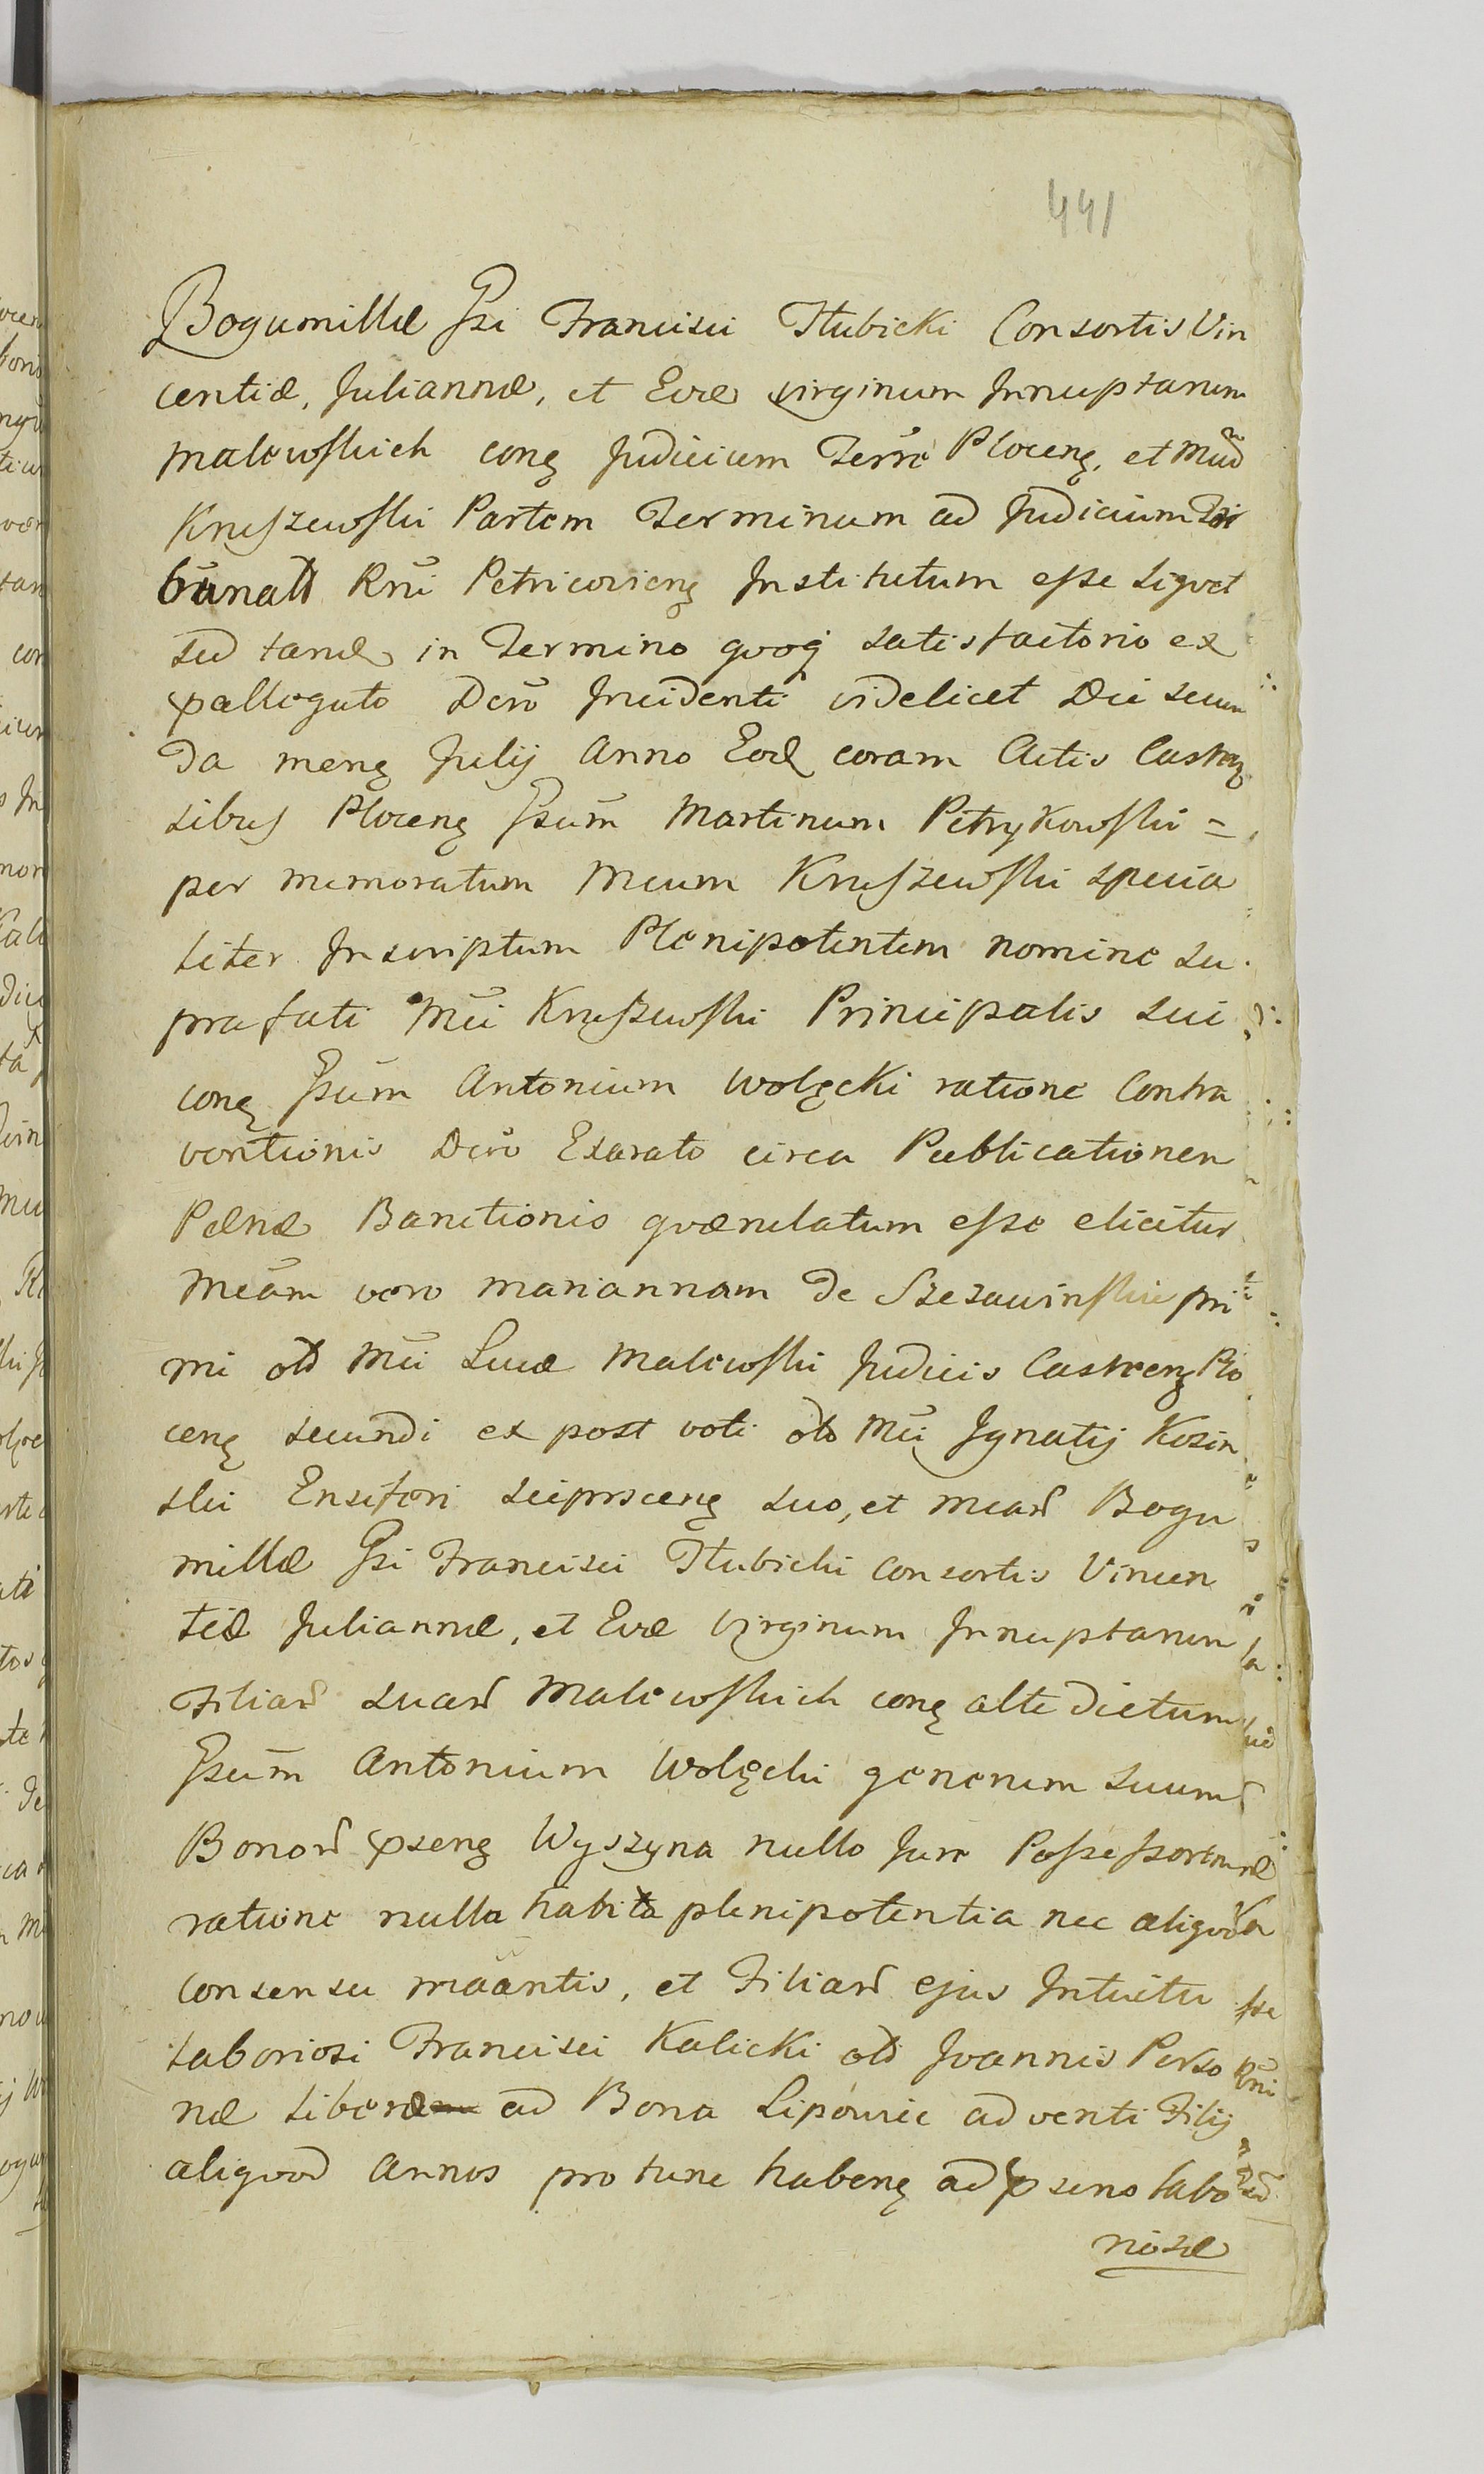 441
Bogumillæ Gsi Francisci Tłubicki Consortis Vin
centiæ, Juliannæ, et Evæ virginum Innuptarum
Malewskich conq Judicium Terre Plocenq, et Mūd
Kruszewski Partem Terminum ad Judicium Tri
bunatt Rni Petricovienq Institutum esse liqvet
sed tand in Termino qvoq satisfactorio ex
palleguto Dero Incidenti videlicet Die secun
da menq Julij Anno Eod coram Actis Castren
sibus Plocenq Gsūm Martinum Petrykowski =
per memoratum Mcum Kruszewski specia
liter Inscriptum Plenipotentem nomine su
prafati Mci Kruszewski Principalis sui
conq Gsūm Antonium Wolęcki ratione Contra
ventionis Dero Exarato circa Publicationem
Pænæ Banctionis qværulatum esse elicitur
Mcām vero Mariannam de Szczawinskie pri
mi ott Mci Lucæ Malewski Judicis Castrenq Plo
cenq secundi ex post voti ott Mci Ignatij Kosin
ski Ensiferi seiprscenq suo, et Mcard Bogu
millæ Gsi Francisci Tłubicki Consortis Vincen
tiæ Juliannæ, et Evæ Virginum Innuptarum
Filiard suard Malewskich conq alte dictum
Gsūm Antonium Wolęcki generum suum
Bonord pzenq Wyszyna nullo Jure Possessorem
ratione nulla habita plenipotentia nec aliqvo
consensu maāntis, et Filiard ejus Intuitu
laboriosi Francisci Kalicki ott Joannis Perso
næ liberæ ad Bona Lipowie adventi Filij
aliqvod Annos pro tunc habenq ad pzens labo
riosæ